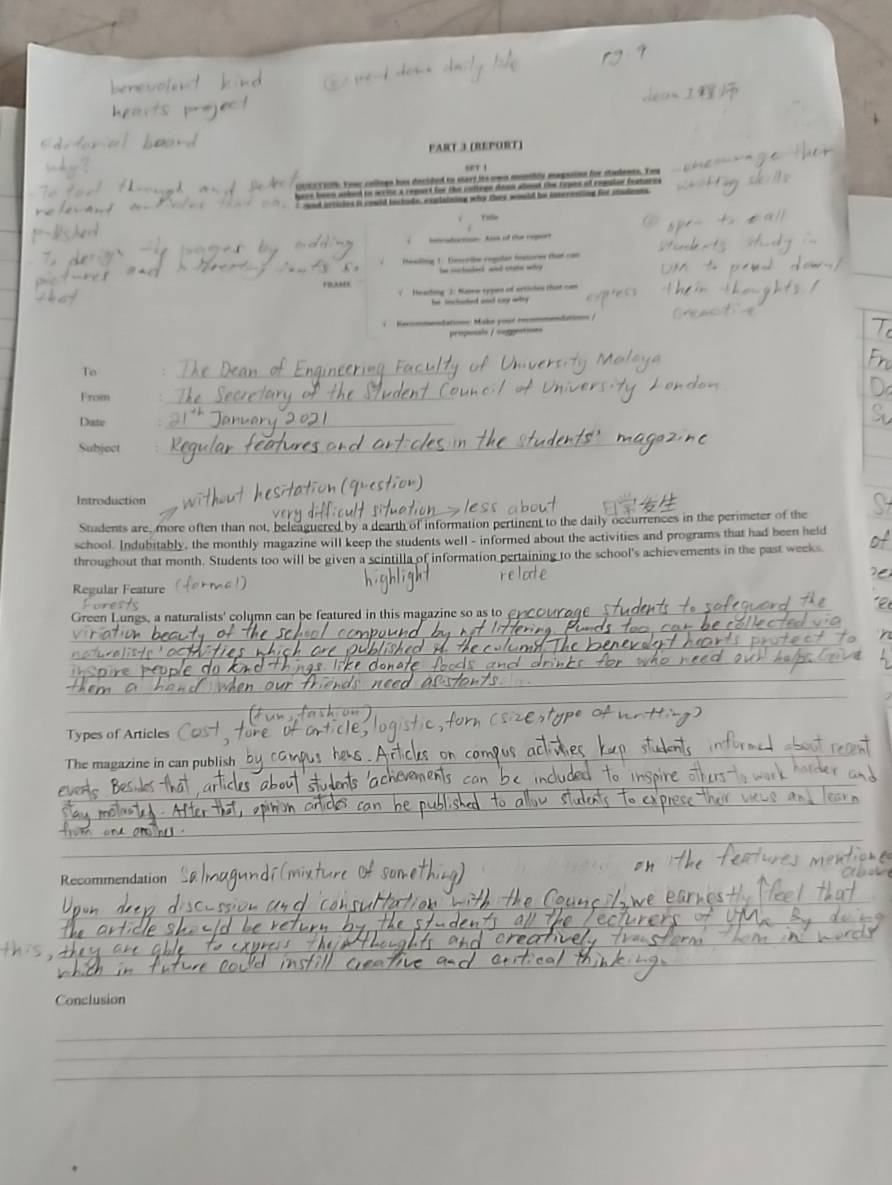 pg 9
benevolent kind
hearts project
daily life
dean 工程师
editorial board
why?
PART 3 [REPORT]
SET 1
QUESTION: Your college has decided to start its own monthly magazine for students. You
have been asked to write a report for the college dean about the types of regular features
and articles it could include, explaining why they would be interesting for students.
encourage their
writting skills
To tool through and select
relevant articles that can
published
To design the pages by adding
pictures and interesting fonts so
that
open to call
students study in
UM to pend down /
express their thoughts /
creactive
Title
Introduction: Aim of the report
Heading 1: Describe regular features that can
be included and state why
FRAME
Heading 2: Name types of articles that can
be included and say why
Recommendations: Make your recommendations /
proposals / suggestions
To : The Dean of Engineering Faculty of University Malaya
From : The Secretary of the Student Council of University London
Date : 21th January 2021
Subject : Regular features and articles in the students' magazine
without hesitation (question)
Introduction very difficult situation → less about 日常发生
Students are, more often than not, beleaguered by a dearth of information pertinent to the daily occurrences in the perimeter of the
school. Indubitably, the monthly magazine will keep the students well - informed about the activities and programs that had been held
throughout that month. Students too will be given a scintilla of information pertaining to the school's achievements in the past weeks.
highlight relate
Regular Feature (formal)
Forests
Green Lungs, a naturalists' column can be featured in this magazine so as to encourage students to safeguard the
viriation beauty of the school compound by not littering. Funds too can be collected via
naturalists' activities which are published in the column. The benevolent hearts protect to
inspire people do kind things like donate foods and drinks for who need our helps. Give
them a hand when our friends need assistants.
(fun, fashion)
Types of Articles Cost, tone of article, logistic, form (size, type of writting)
The magazine in can publish by campus news. Articles on campus activities keep students informed about recent
events Besides that, articles about students' achevements can be included to inspire others to work harder and
stay motivated. After that, opinion articles can be published to allow students to exprese their views and learn
from one another.
Recommendation Salmagundi (mixture of something)
on the features mentioned
above
Upon deep discussion and consultation with the Council, we earnestly feel that
the article should be return by the students all the lecturers of UM. By doing
this, they are able to express their thoughts and creatively transform them in words
which in future could instill creative and critical thinking.
Conclusion